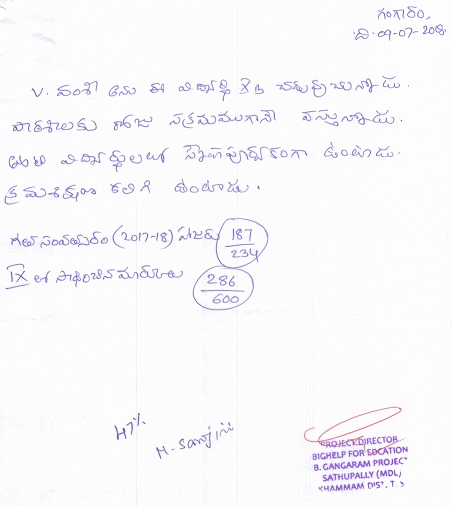 గంగారం,
ది. 09-07-2018.
V. వంశీ అను ఈ విద్యార్థి X వ చదువుచున్నాడు.
పాఠశాలకు రోజు సక్రమముగానే వస్తున్నాడు.
తోటి విద్యార్థులతో స్నేహపూర్వకంగా ఉంటాడు.
క్రమశిక్షణ కలిగి ఉంటాడు.
గత సంవత్సరం (2017-18) హాజరు 187/234
IX లో సాధించిన మార్కులు 286/600
47%
PROJECT DIRECTOR
BIGHELP FOR EDCATION
B. GANGARAM PROJECT
SATHUPALLY (MDL)
KHAMMAM DIST, T.S